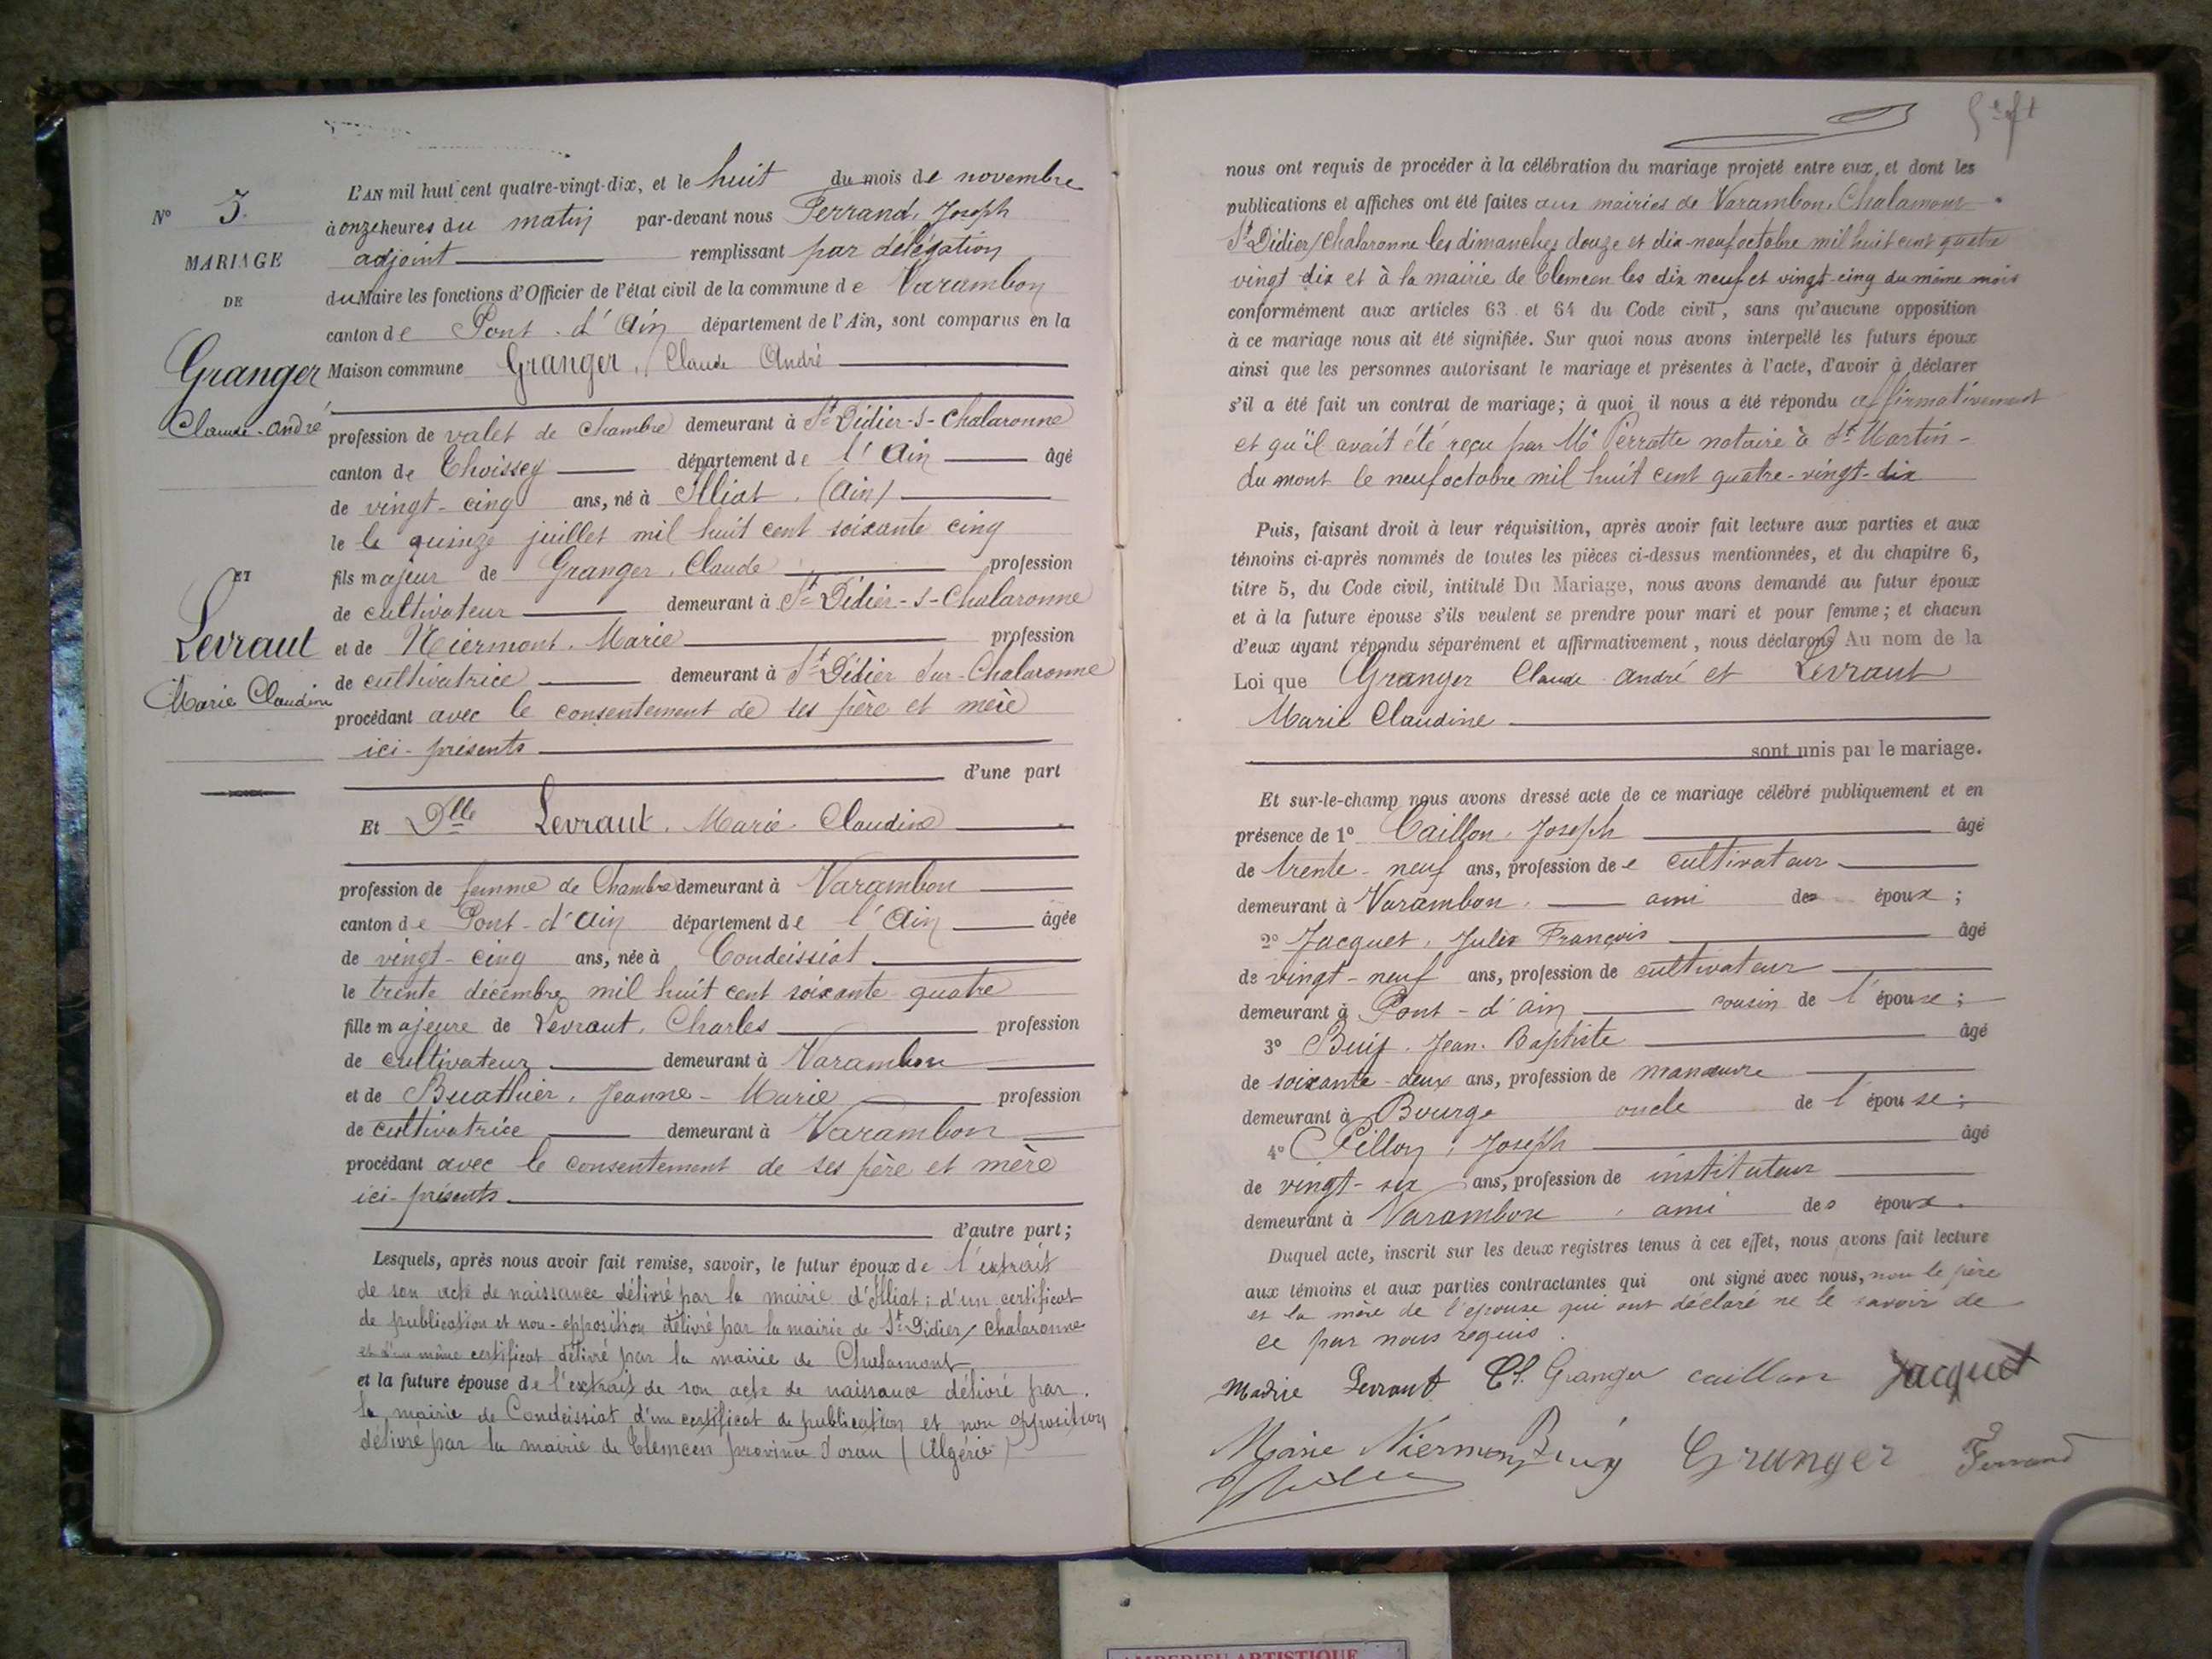 5e ft
N° 3.
MARIAGE
DE
Granger
Claude-André
ET
Levraut
Marie Claudine
L'AN mil huit cent quatre-vingt-dix, et le huit du mois de novembre
à onze heures du matin par-devant nous Ferrand, Joseph
adjoint remplissant par délégation
du Maire les fonctions d'Officier de l'état civil de la commune de Varambon
canton de Pont-d'Ain département de l'Ain, sont comparus en la
Maison commune Granger, Claude André
profession de valet de Chambre demeurant à St Didier-s-Chalaronne
canton de Thoissey département de l'Ain âgé
de vingt-cinq ans, né à Illiat (Ain)
le le quinze juillet mil huit cent soixante cinq
fils majeur de Granger, Claude profession
de cultivateur demeurant à St Didier-s-Chalaronne
et de Niermont, Marie profession
de cultivatrice demeurant à St Didier sur-Chalaronne
procédant avec le consentement de ses père et mère
ici-présents
d'une part
Et Dlle Levraut, Marie-Claudine
profession de femme de Chambre demeurant à Varambon
canton de Pont-d'Ain département de l'Ain âgée
de vingt-cinq ans, née à Condeissiat
le trente décembre mil huit cent soixante quatre
fille majeure de Levraut, Charles profession
de cultivateur demeurant à Varambon
et de Buathier, Jeanne-Marie profession
de cultivatrice demeurant à Varambon
procédant avec le consentement de ses père et mère
ici-présents
d'autre part;
Lesquels, après nous avoir fait remise, savoir, le futur époux de l'extrait
de son acte de naissance délivré par la mairie d'Illiat; d'un certificat
de publication et non-opposition délivré par la mairie de St Didier/Chalaronne
et d'un même certificat délivré par la mairie de Chalamont
et la future épouse de l'extrait de son acte de naissance délivré par
la mairie de Condeissiat d'un certificat de publication et non opposition
délivré par la mairie de Tlemcen province d'oran (Algérie)
nous ont requis de procéder à la célébration du mariage projeté entre eux, et dont les
publications et affiches ont été faites aux mairies de Varambon, Chalamont
St Didier/Chalaronne les dimanches douze et dix-neuf octobre mil huit cent quatre
vingt dix et à la mairie de Tlemcen les dix neuf et vingt-cinq du même mois
conformément aux articles 63 et 64 du Code civil, sans qu'aucune opposition
à ce mariage nous ait été signifiée. Sur quoi nous avons interpellé les futurs époux
ainsi que les personnes autorisant le mariage et présentes à l'acte, d'avoir à déclarer
s'il a été fait un contrat de mariage; à quoi il nous a été répondu affirmativement
et qu'il avait été reçu par Me Perratte notaire à St Martin-
du mont le neuf octobre mil huit cent quatre-vingt-dix
Puis, faisant droit à leur réquisition, après avoir fait lecture aux parties et aux
témoins ci-après nommés de toutes les pièces ci-dessus mentionnées, et du chapitre 6,
titre 5, du Code civil, intitulé Du Mariage, nous avons demandé au futur époux
et à la future épouse s'ils veulent se prendre pour mari et pour femme; et chacun
d'eux ayant répondu séparément et affirmativement, nous déclarons Au nom de la
Loi que Granger Claude-André et Levraut
Marie Claudine
sont unis par le mariage.
Et sur-le-champ nous avons dressé acte de ce mariage célébré publiquement et en
présence de 1° Caillon, Joseph âgé
de trente-neuf ans, profession de e cultivateur
demeurant à Varambon, ami des époux;
2° Jacquet, Jules François âgé
de vingt-neuf ans, profession de cultivateur
demeurant à Pont-d'ain cousin de l'épouse;
3° Buis, Jean-Baptiste âgé
de soixante-deux ans, profession de manœuvre
demeurant à Bourg oncle de l'épouse;
4° Pillon, Joseph âgé
de vingt-six ans, profession de instituteur
demeurant à Varambon, ami des époux.
Duquel acte, inscrit sur les deux registres tenus à cet effet, nous avons fait lecture
aux témoins et aux parties contractantes qui ont signé avec nous, non le père
et la mère de l'épouse qui ont déclaré ne le savoir de
ce par nous requis.
Marie Levraut Cl. Granger Caillon Jacquet
Marie Niermont Buis Granger Ferrand
AMBERIEU ARTISTIQUE